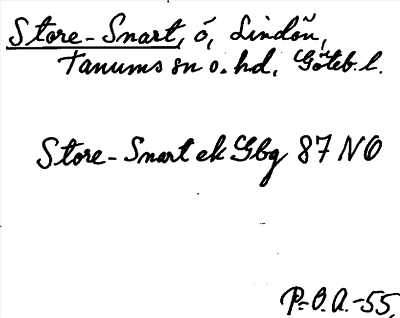 Store-Snart, ö, Lindön,
Tanums sn o. hd, Göteb. l.
Store-Snart ek Gbg 87 NO
P.O.A.-55.